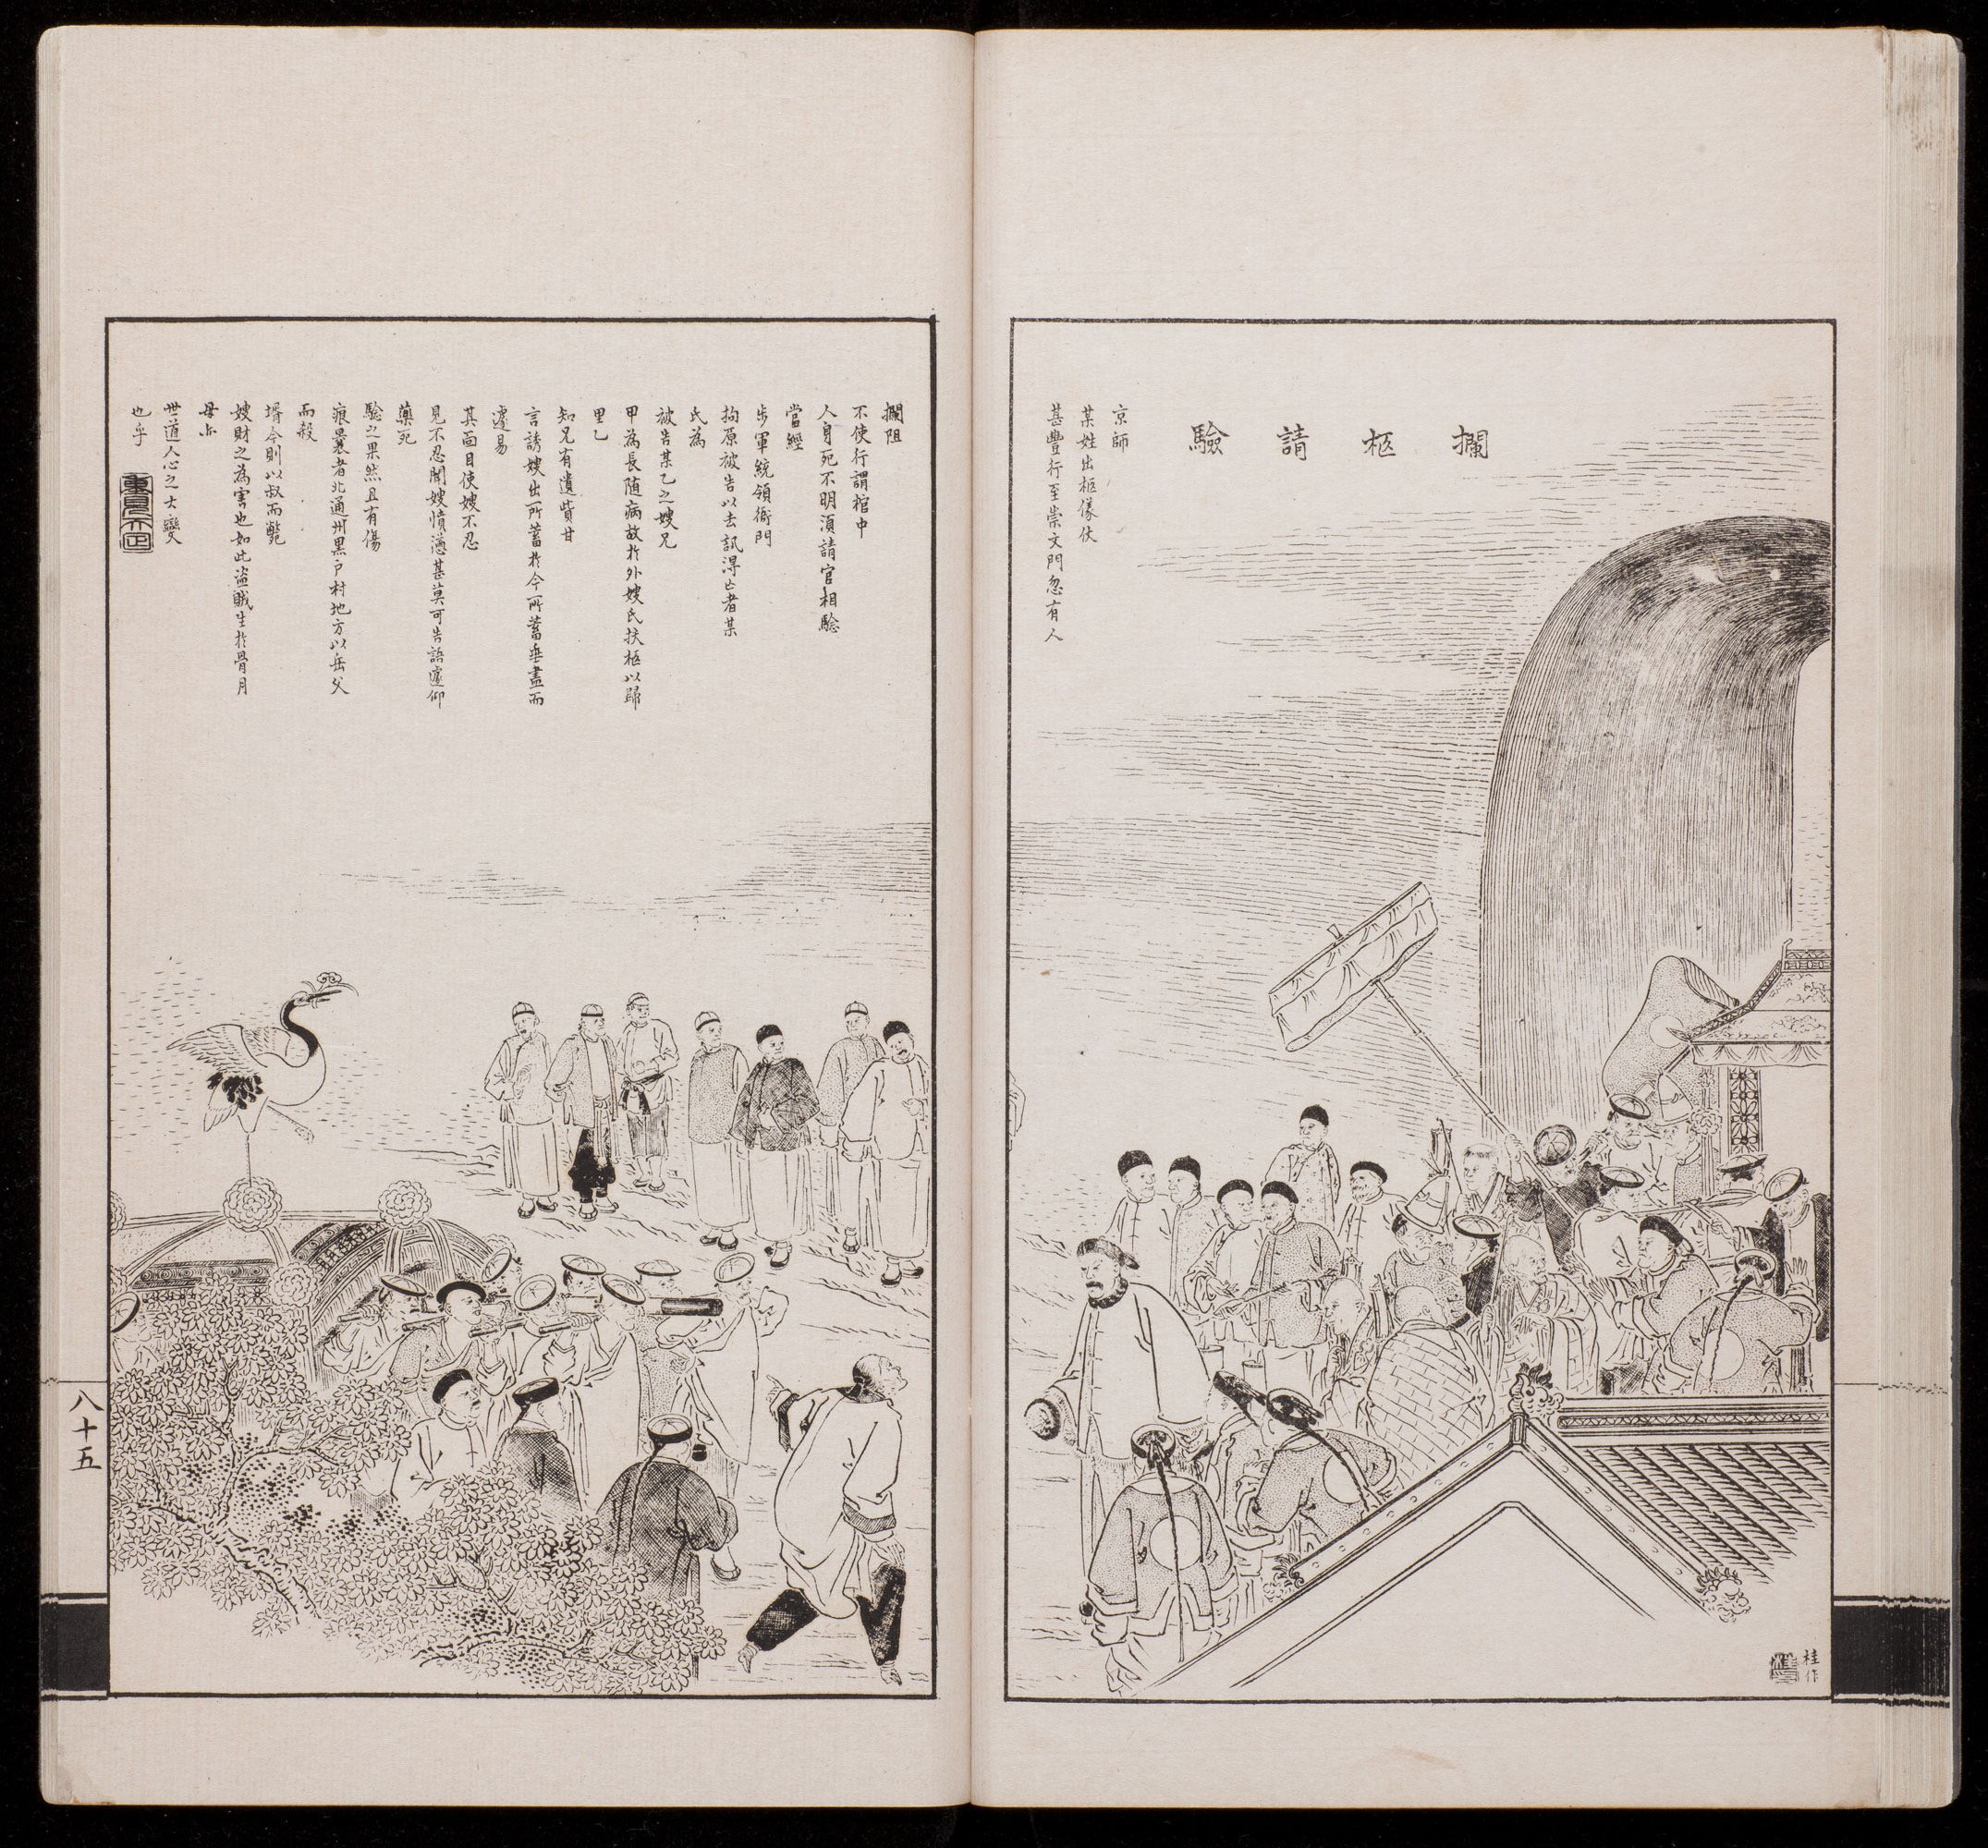 攔柩請驗
京師
某姓出柩儀仗
甚豐行至崇文門忽有人
攔阻
不使行謂棺中
人身死不明湏請官相驗
當經
步軍統領衙門
拘原被告以去訊淂亡者某
氏為
被告某乙之嫂兄
甲為長随病故扵外嫂氏扶柩以歸
里乙
知兄有遺貲甘
言誘嫂出所蓄扵今所蓄垂盡而
遽易
其面目使嫂不忍
見不忍聞嫂憤懣甚莫可告語遽仰
藥死
驗之果然且有傷
痕曩者北通州黒戸村地方以岳父
而殺
壻今則以叔而斃
嫂財之為害也如此盜賊生扵骨月
毋亦
世道人心之大變
也乎
八十五
桂作